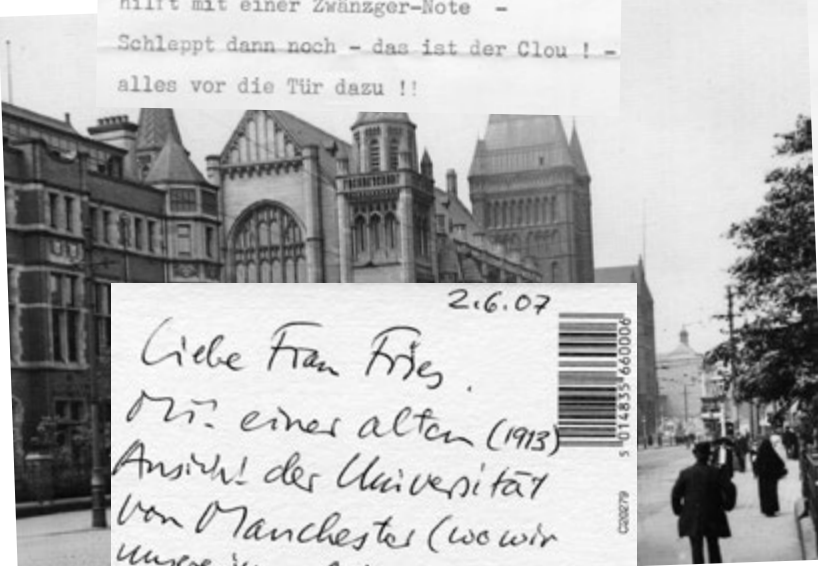 hilft mit einer Zwänzger-Note -
Schleppt dann noch - das ist der Clou ! -
alles vor die Tür dazu !!
2.6.07
Liebe Frau Fries,
Mit einer alten (1913)
Ansicht der Universität
von Manchester (wo wir
unsere
5 014835 660006
C20279